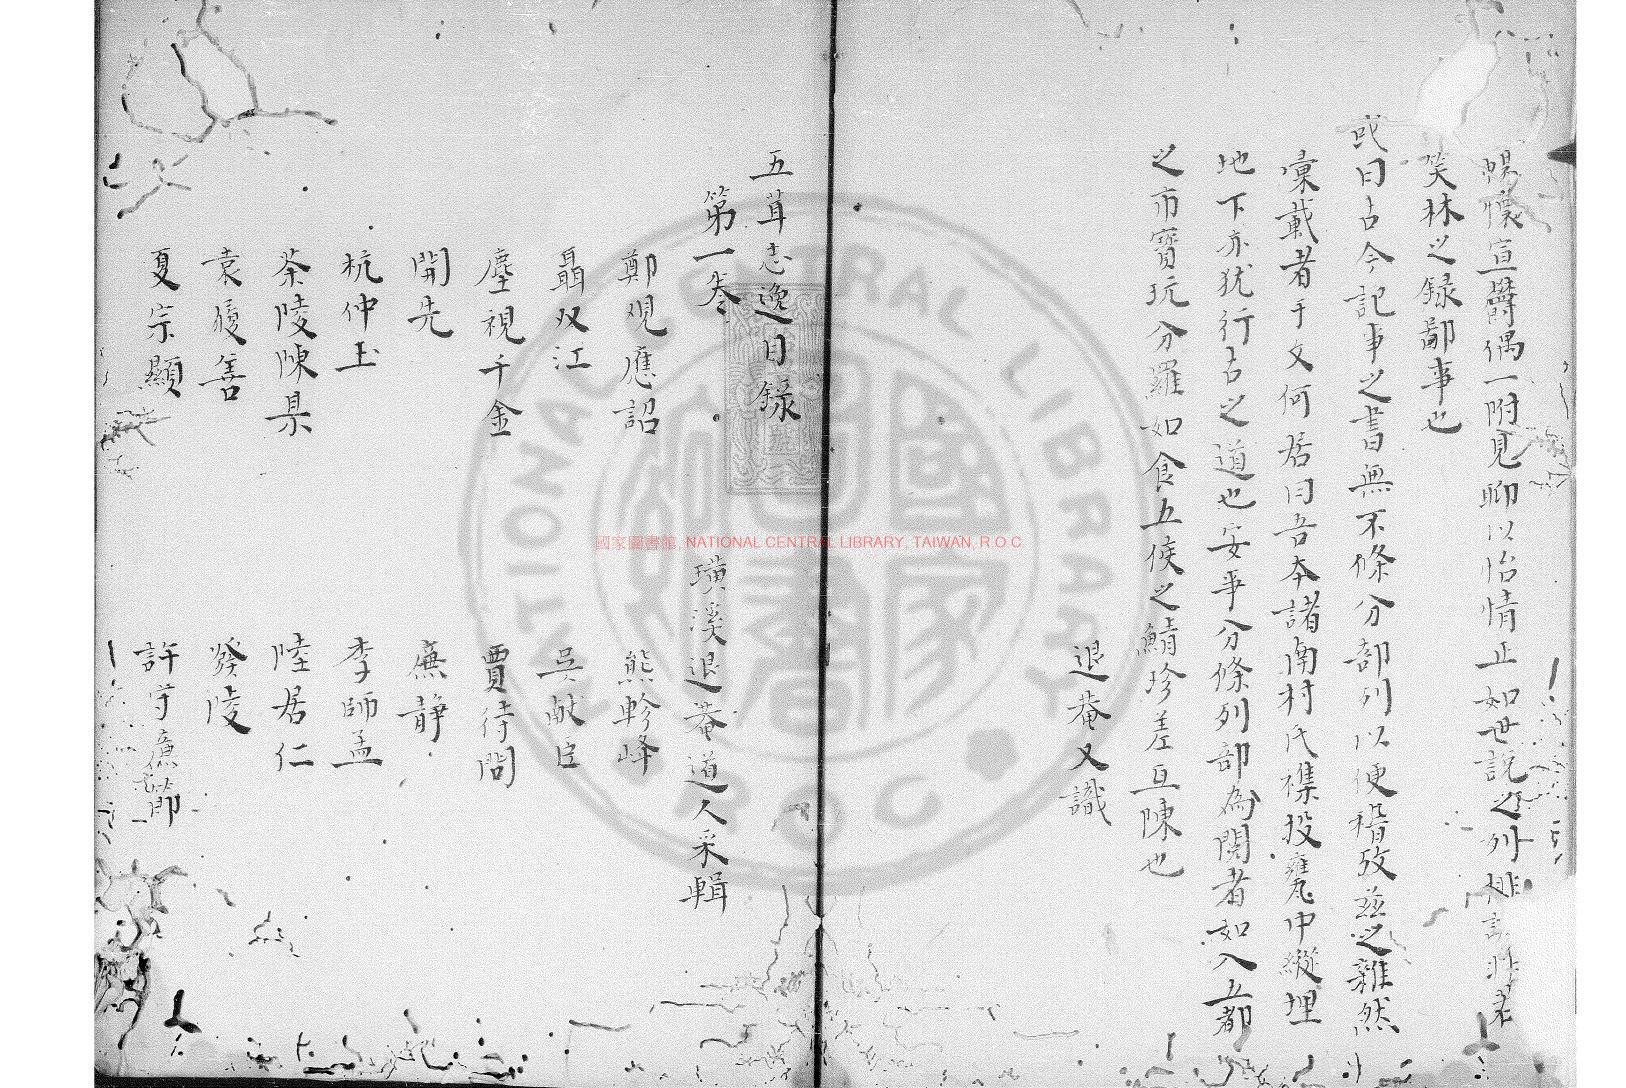 暢懷宣欝偶一附見聊以怡情正如世説之列俳諧非君
笑林之録鄙事也
或曰古今記事之書無不條分部列以便稽攷茲之雜然
彚載者于文何居曰吾本諸南村氏襍投甕中縱埋
地下亦猶行古之道也安事分條列部為閱者如入五都
之市寳玩分羅如食五侯之鯖珍差亘陳也
退菴又識
五茸志逸目錄
第一卷
璜溪退菴道人采輯
鄭观應詔
熊軫峰
聶双江
吳猷臣
塵視千金
賈待問
開先
廉靜
杭仲玉
李師孟
茶陵陳杲
陸居仁
袁履善
癸陵
夏宗顯
許守廉節
國家圖書館, NATIONAL CENTRAL LIBRARY, TAIWAN, R.O.C
NATIONAL CENTRAL LIBRARY
R O C
國家圖書館